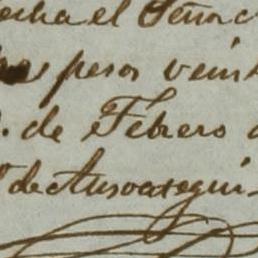 echa el Señor
pesos veint
de Febrero
de Ausoategui